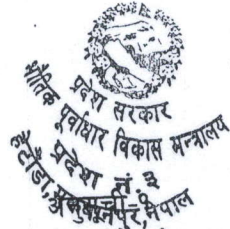 प्रदेश सरकार
भौतिक पूर्वाधार विकास मन्त्रालय
प्रदेश नं. ३
हेटौंडा, नेपाल